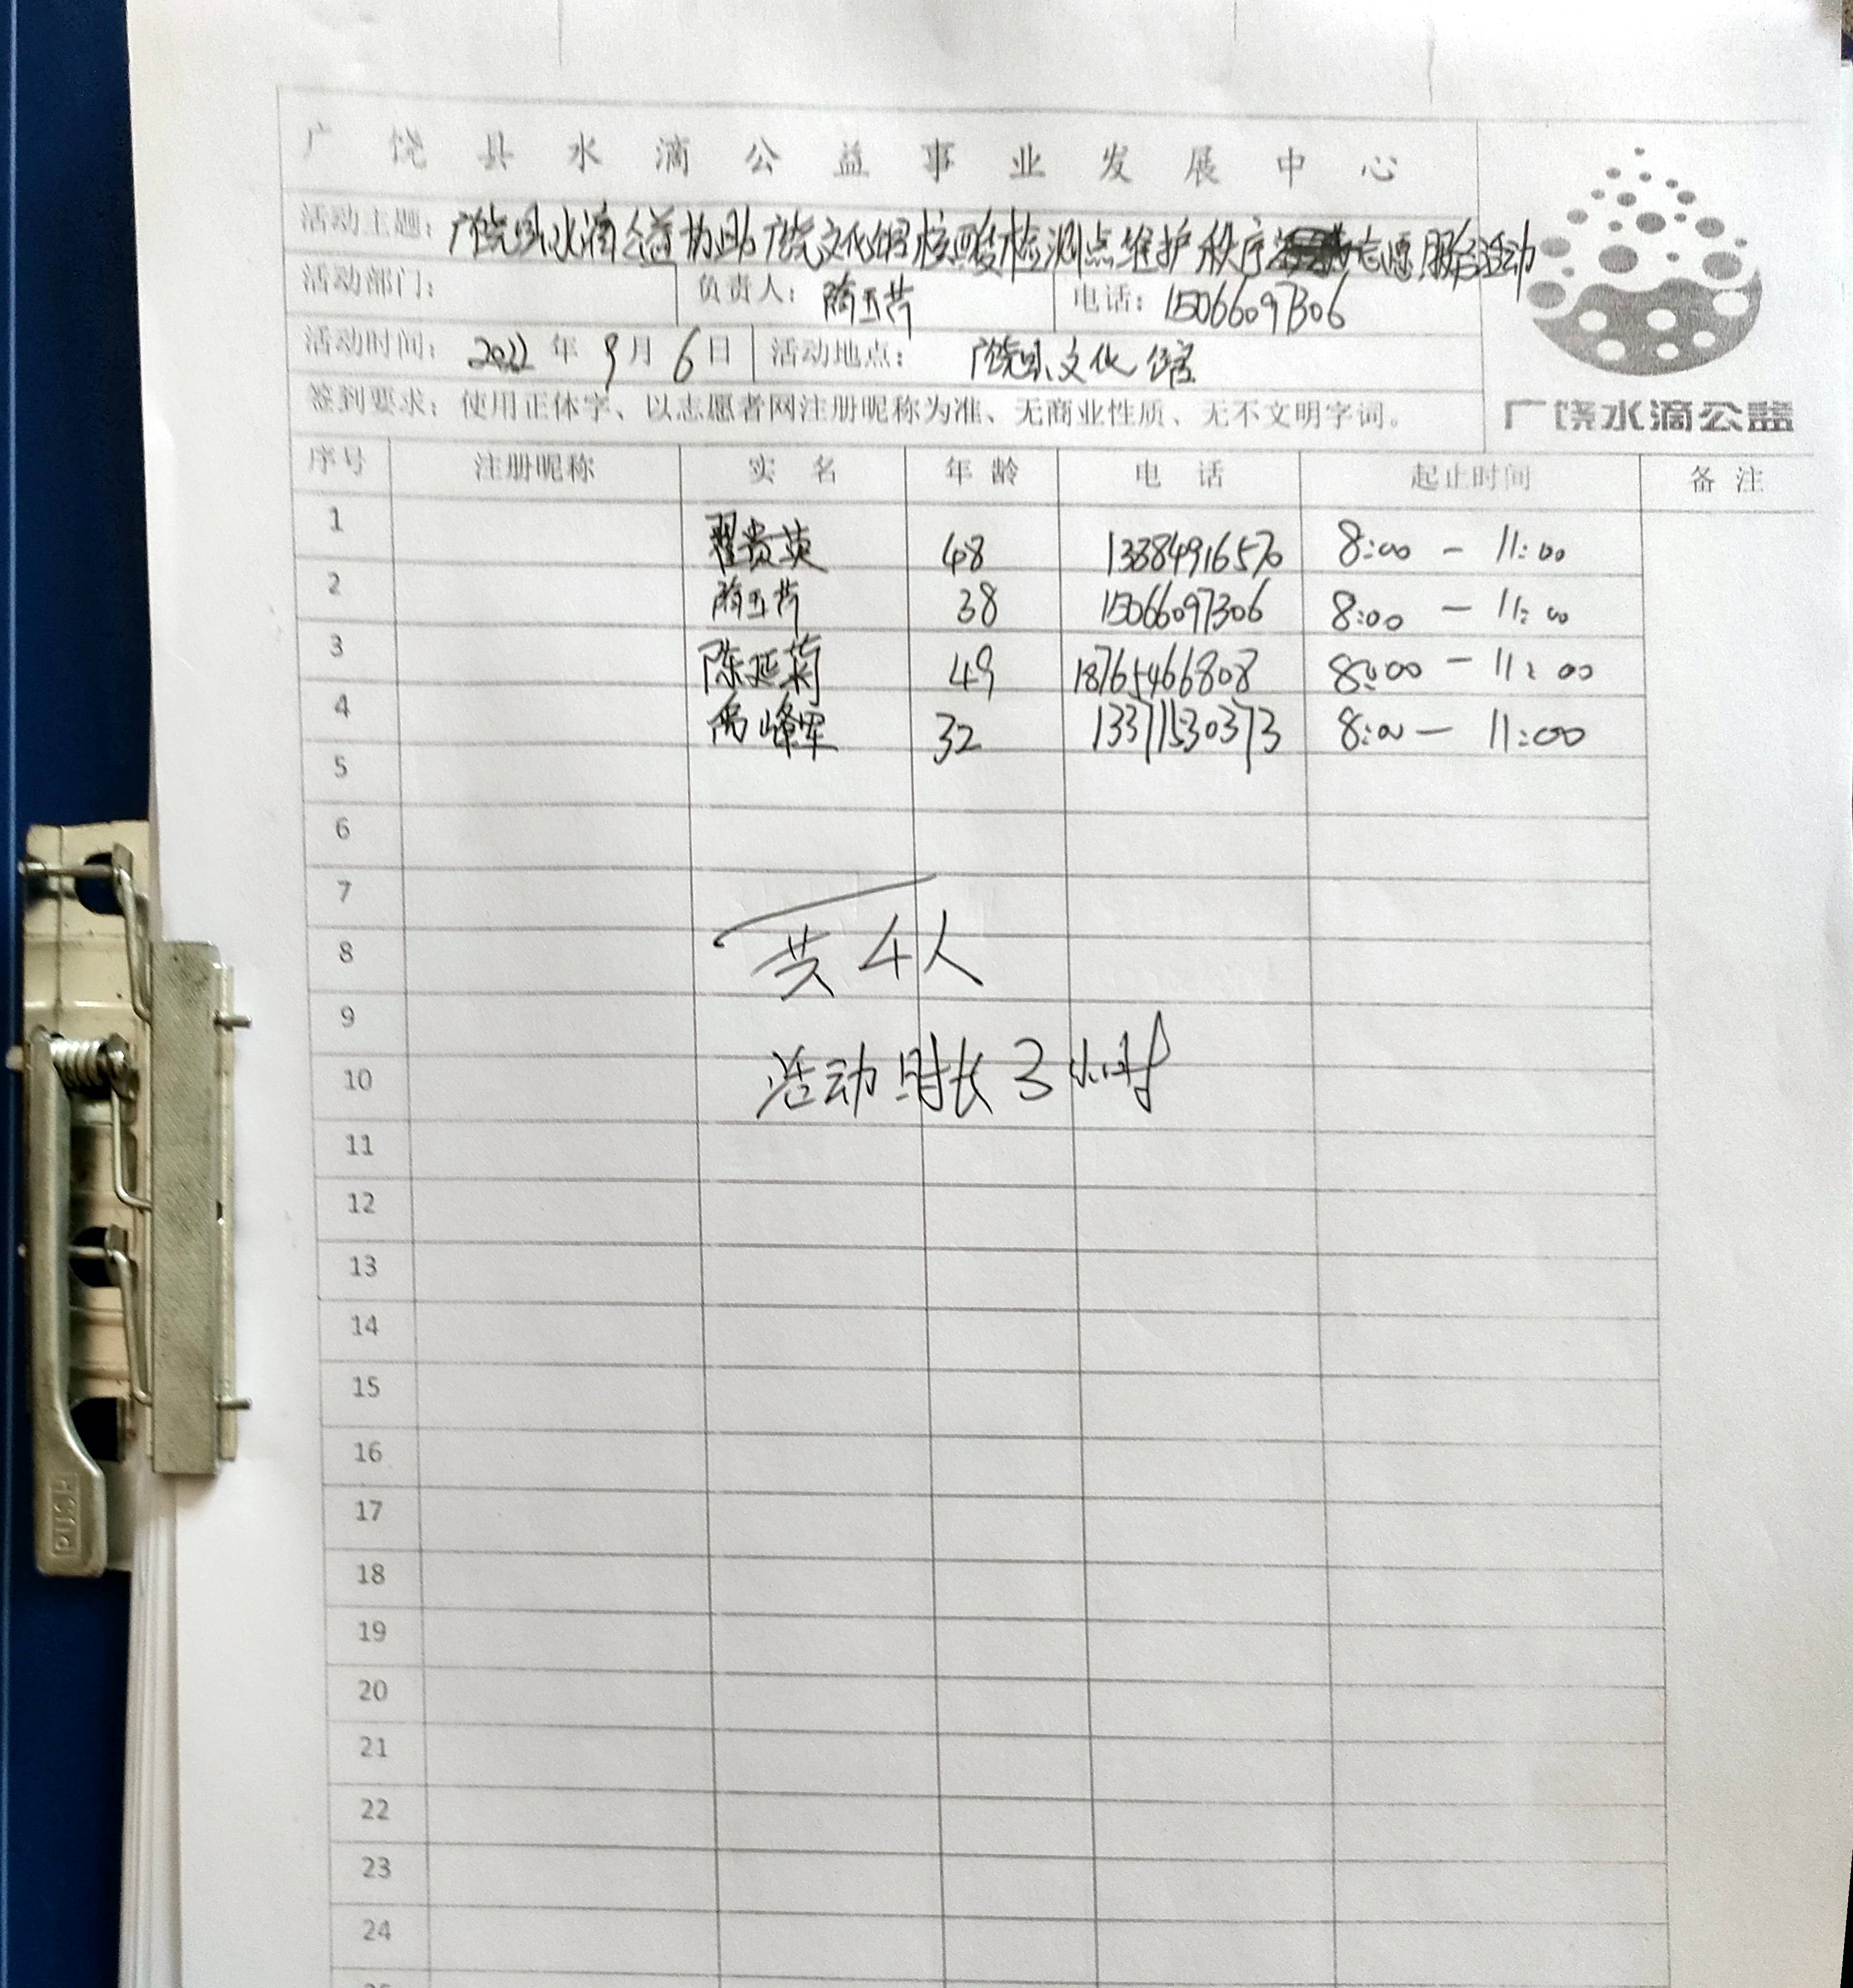 广饶县水滴公益事业发展中心
活动主题：广饶县水滴公益协助广饶文化馆核酸检测点维护秩序志愿服务活动
活动部门： 负责人：隋玉芹 电话：15066097306
活动时间：2022年9月6日 活动地点：广饶县文化馆
签到要求：使用正体字、以志愿者网注册昵称为准、无商业性质、无不文明字词。
广饶水滴公益
序号 注册昵称 实名 年龄 电话 起止时间 备注
1 翟贵英 48 13384916570 8:00 - 11:00
2 隋玉芹 38 15066097306 8:00 - 11:00
3 陈延菊 49 18765466808 8:00 - 11:00
4 峰军 32 13371530373 8:00 - 11:00
5
6
7
8 共4人
9
10 活动时长3小时
11
12
13
14
15
16
17
18
19
20
21
22
23
24
PUSH